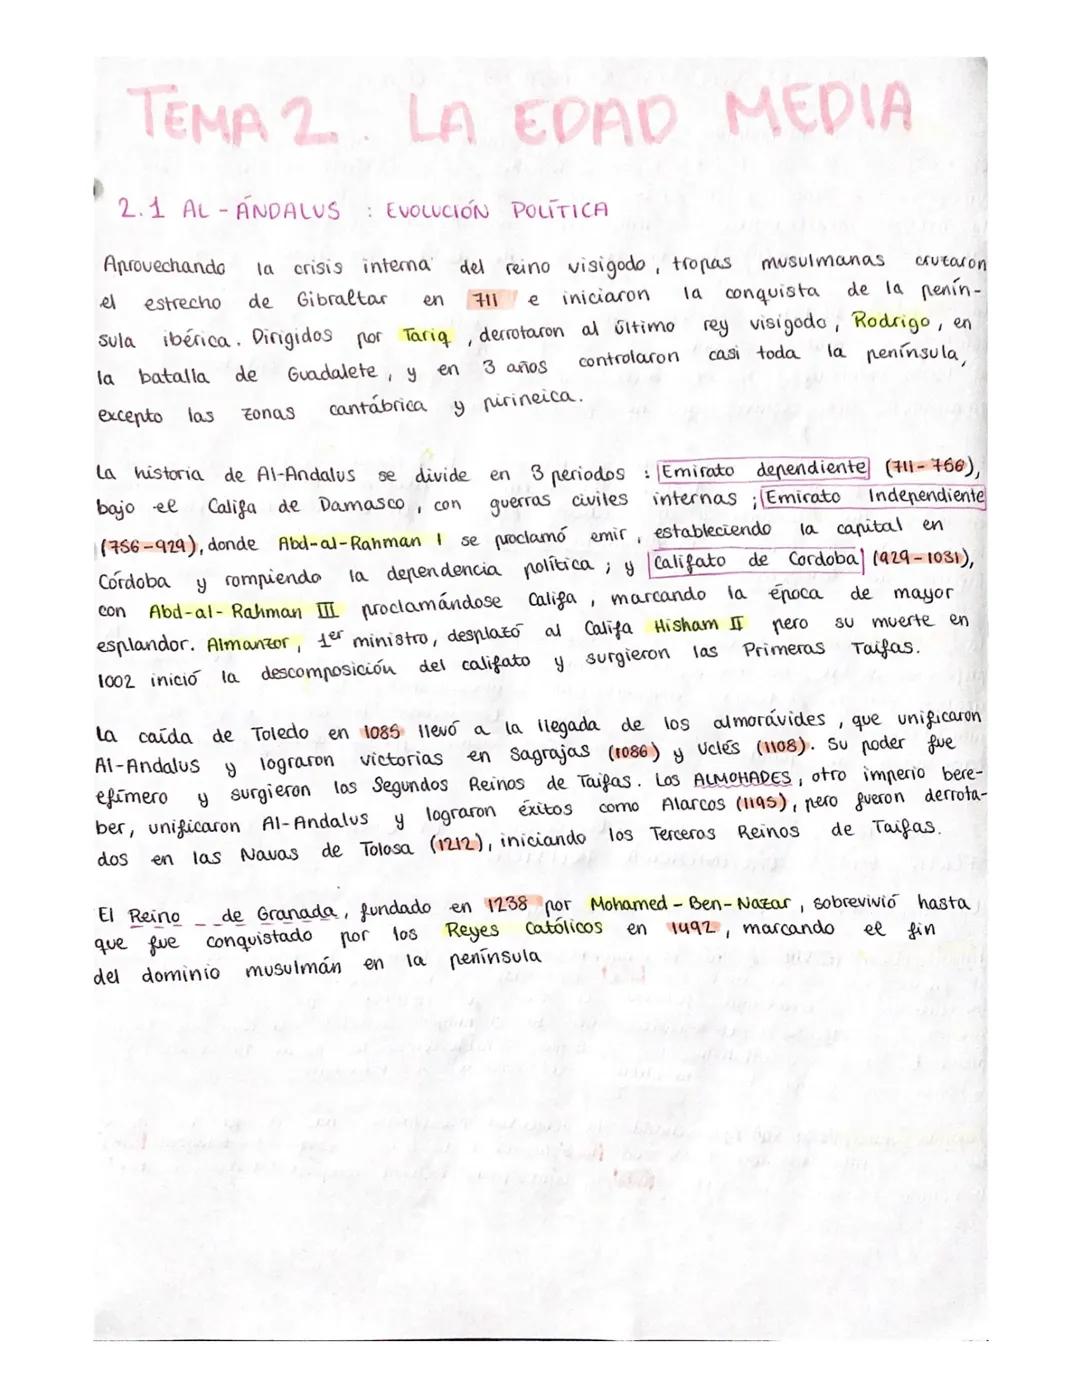 TEMA 2. LA EDAD MEDIA
2.1 AL-ÁNDALUS : EVOLUCIÓN POLÍTICA
Aprovechando la crisis interna del reino visigodo, tropas musulmanas cruzaron
el estrecho de Gibraltar en 711 e iniciaron la conquista de la penín-
sula ibérica. Dirigidos por Tariq, derrotaron al último rey visigodo, Rodrigo, en
la batalla de Guadalete, y en 3 años controlaron casi toda la península,
excepto las zonas cantábrica y pirineica.
La historia de Al-Andalus se divide en 3 periodos : Emirato dependiente (711-756),
bajo el Califa de Damasco, con guerras civiles internas ; Emirato Independiente
(756-929), donde Abd-al-Rahman I se proclamó emir, estableciendo la capital en
Córdoba y rompiendo la dependencia política ; y Califato de Cordoba (929-1031),
con Abd-al-Rahman III proclamándose Califa, marcando la época de mayor
esplandor. Almanzor, 1er ministro, desplazó al Califa Hisham II pero su muerte en
1002 inició la descomposición del califato y surgieron las Primeras Taifas.
La caída de Toledo en 1085 llevó a la llegada de los almorávides, que unificaron
Al-Andalus y lograron victorias en Sagrajas (1086) y Uclés (1108). Su poder fue
efímero y surgieron los Segundos Reinos de Taifas. Los ALMOHADES, otro imperio bere-
ber, unificaron Al-Andalus y lograron éxitos como Alarcos (1195), pero fueron derrota-
dos en las Navas de Tolosa (1212), iniciando los Terceros Reinos de Taifas.
El Reino de Granada, fundado en 1238 por Mohamed-Ben-Nazar, sobrevivió hasta
que fue conquistado por los Reyes Católicos en 1492, marcando el fin
del dominio musulmán en la península